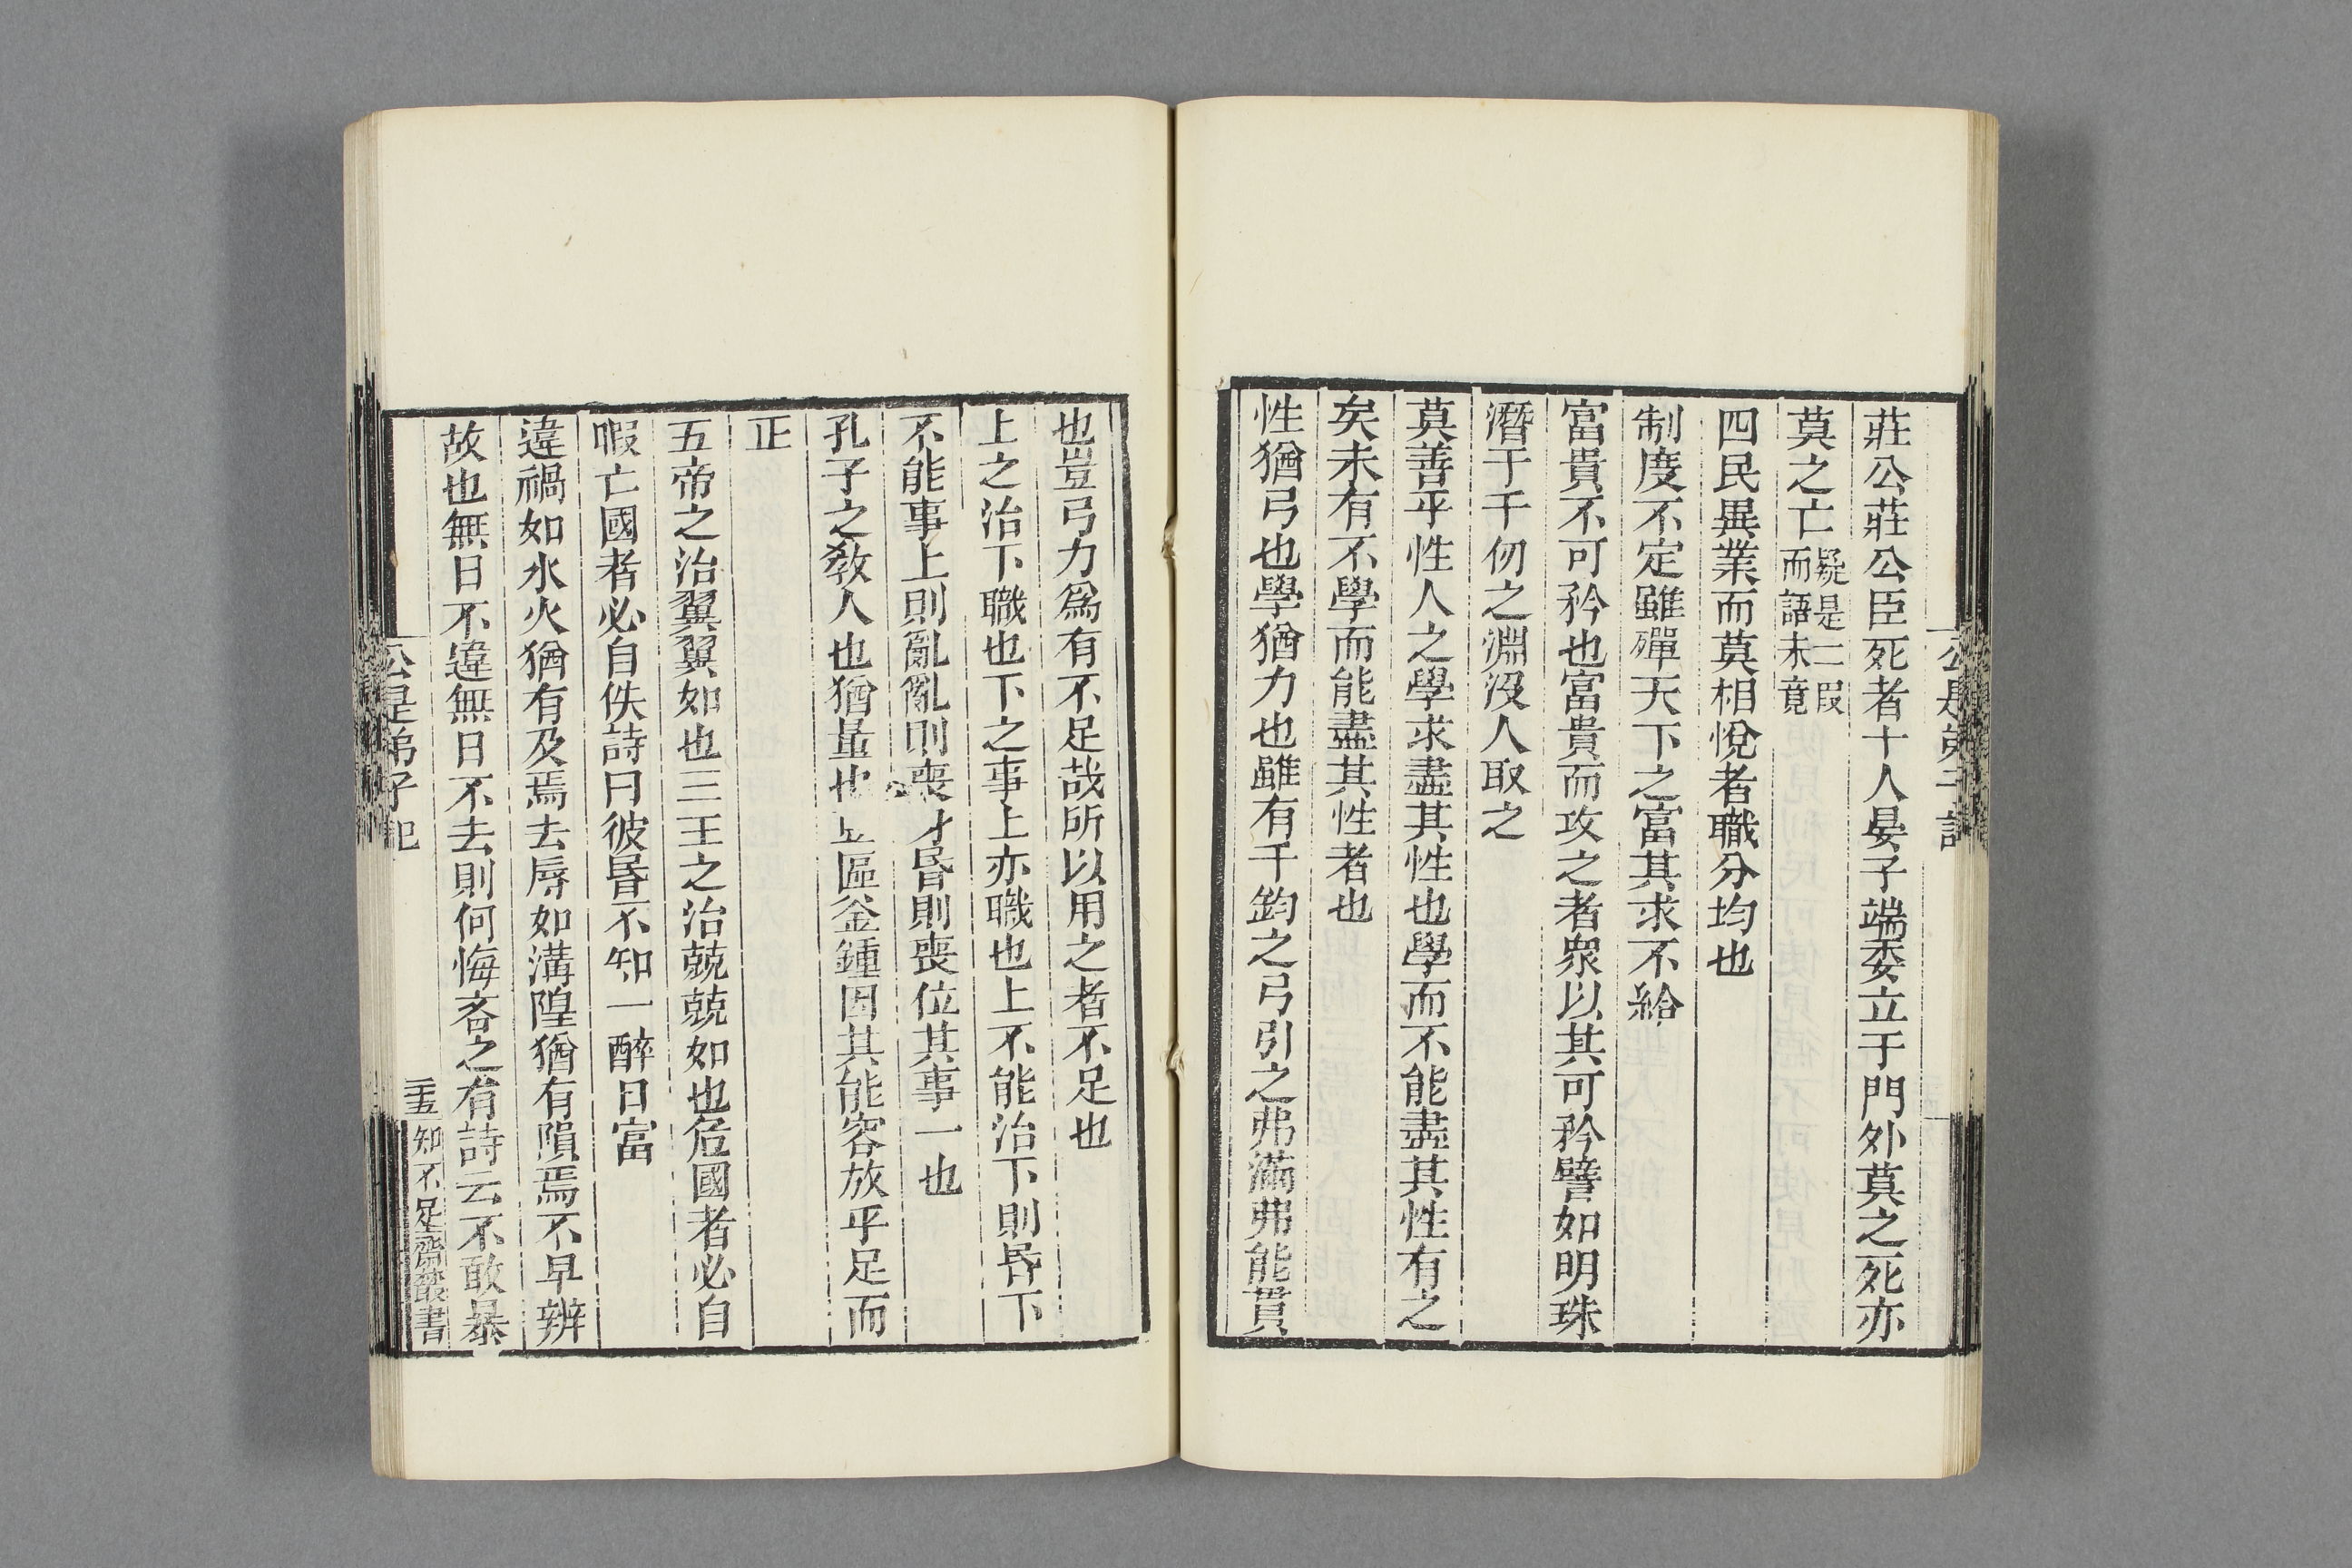 莊公莊公臣死者十人晏子端委立于門外莫之死亦
莫之亡疑是二叚而語未竟
四民異業而莫相悅者職分均也
制度不定雖殫天下之富其求不給
富貴不可矜也富貴而攻之者衆以其可矜譬如明珠
潛于千仞之淵沒人取之
莫善乎性人之學求盡其性也學而不能盡其性有之
矣未有不學而能盡其性者也
性猶弓也學猶力也雖有千鈞之弓引之弗滿弗能貫
也豈弓力爲有不足哉所以用之者不足也
上之治下職也下之事上亦職也上不能治下則昬下
不能事上則亂亂則喪才昬則喪位其事一也
孔子之敎人也猶量也豆區釜鍾因其能容放乎足而
正
五帝之治翼翼如也三王之治兢兢如也危國者必自
暇亡國者必自佚詩曰彼昬不知一醉日富
違禍如水火猶有及焉去辱如溝隍猶有隕焉不早辨
故也無日不違無日不去則何悔吝之有詩云不敢暴
公是弟子記
知不足齋叢書